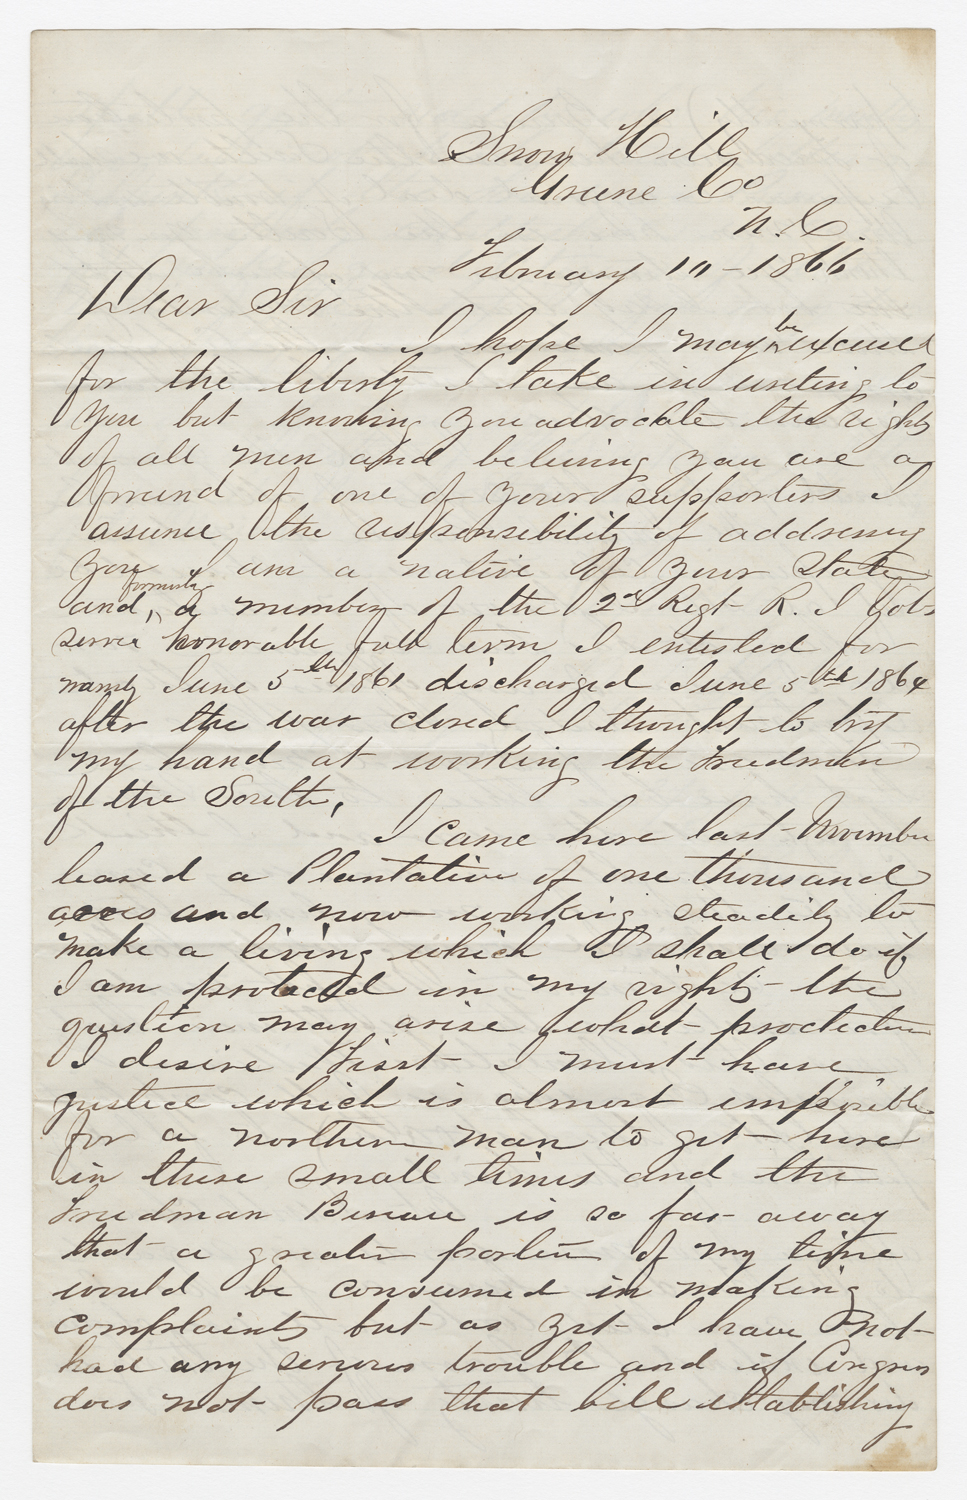 Snow Hill
Greene Co
N. C.
February 10 - 1866
Dear Sir
I hope I may be excused
for the liberty I take in writing to
you but knowing you advocate the rights
of all men and believing you are a
friend of one of your supporters I
assume the responsibility of addressing
you I am a native of your State
and, formerly a member of the 2nd Regt R. I Vols
served honorable full term I enlisted for
namly June 5th 1861 discharged June 5th 1864
after the war closed I thought to try
my hand at working the Freedmen
of the South,
I came here last November
leased a Plantation of one thousand
acres and now working steadily to
make a living which I shall do if
I am protected in my rights - the
question may arise what protection
I desire First I must have
justice which is almost impossible
for a northern man to get here
in these small times and the
Freedman Bureau is so far away
that a greater portion of my time
would be consumed in making
complaints but as yet I have not
had any serious trouble and if Congress
does not pass that bill establishing